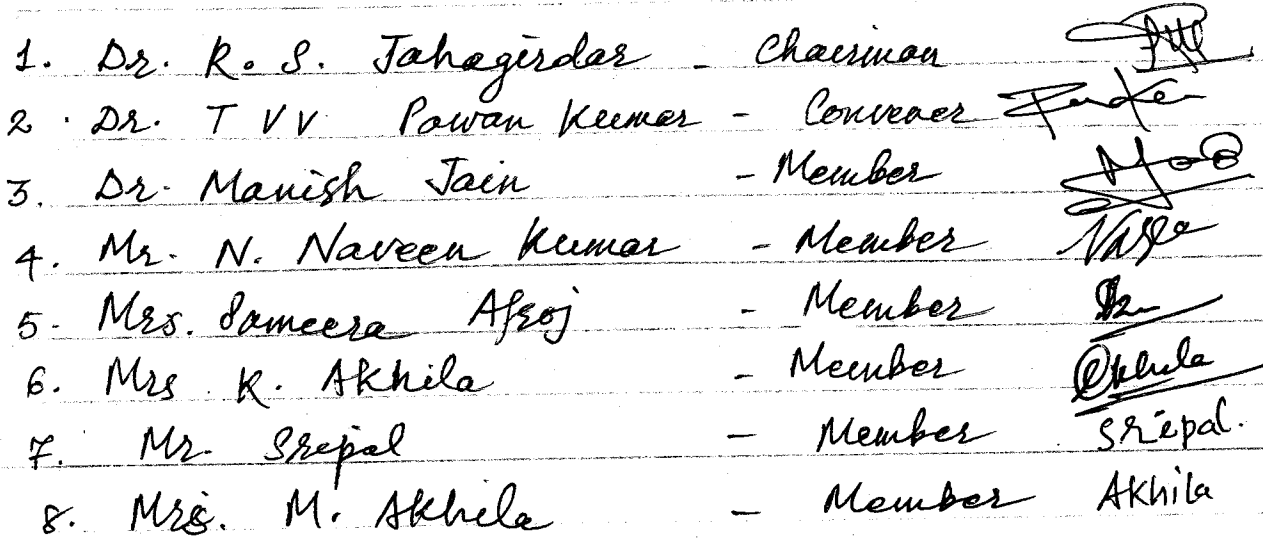 1. Dr. R. S. Jahagirdar - Chairman
2. Dr. T V V Pawan Kumar - Convener
3. Dr. Manish Jain - Member
4. Mr. N. Naveen Kumar - Member
5. Mrs. Sameera Afroj - Member
6. Mrs K. Akhila - Member Akhila
7. Mr. Sripal - Member Sripal.
8. Mrs. M. Akhila - Member Akhila